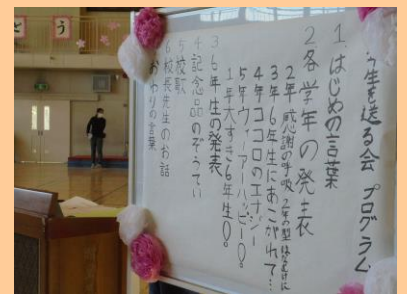 う
6年生を送る会 プログラム
1 はじめの言葉
2 各学年の発表
2年 感謝の呼吸
3年 6年生にあこがれて…
4年 ココロのエナジー
5年 ウィーアーハッピー○!
1年 大すき6年生!○!
3 6年生の発表
4 記念品のぞうてい
5 校歌
6 校長先生のお話
おわりの言葉